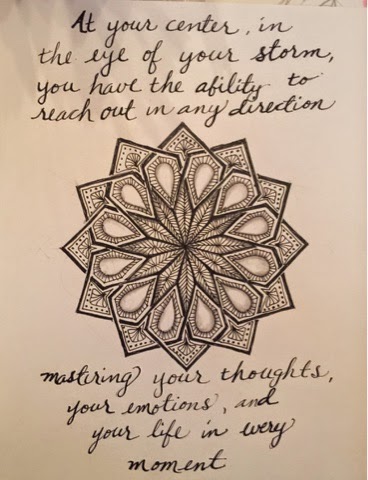 At your center, in
the eye of your storm,
you have the ability to
reach out in any direction
mastering your thoughts,
your emotions, and
your life in every
moment